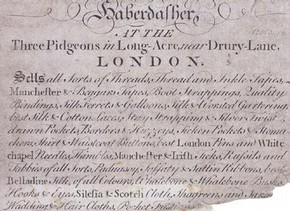 Haberdasher,
AT THE
Three Pidgeons in Long-Acre, near Drury-Lane,
LONDON.
Sells all Sorts of Threads, Thread and Inkle Tapes,
Manchester & Beggars Tapes, Boot Strappings, Quality
Bindings, Silk Ferrets & Galloons, Silk & Worsted Gartering,
best Silk & Cotton Laces, Stay Wrapping & Silver Twist
drawn Pockets, Borders & Ticken Pockets & Stoma
chers, Shirt & Waistcoat Buttons, best London Pins and White
chapel Needles, Thimbles, Manchester & Irish Ticks,
of all Sorts, Padusoy, Taffaty & Sattin Ribbons, best
Belladine Silk, of all Colours, & Whalebone
Hooks & Eyes, Silesia & Scotch Cloth,
Wadding & Hair Cloths,